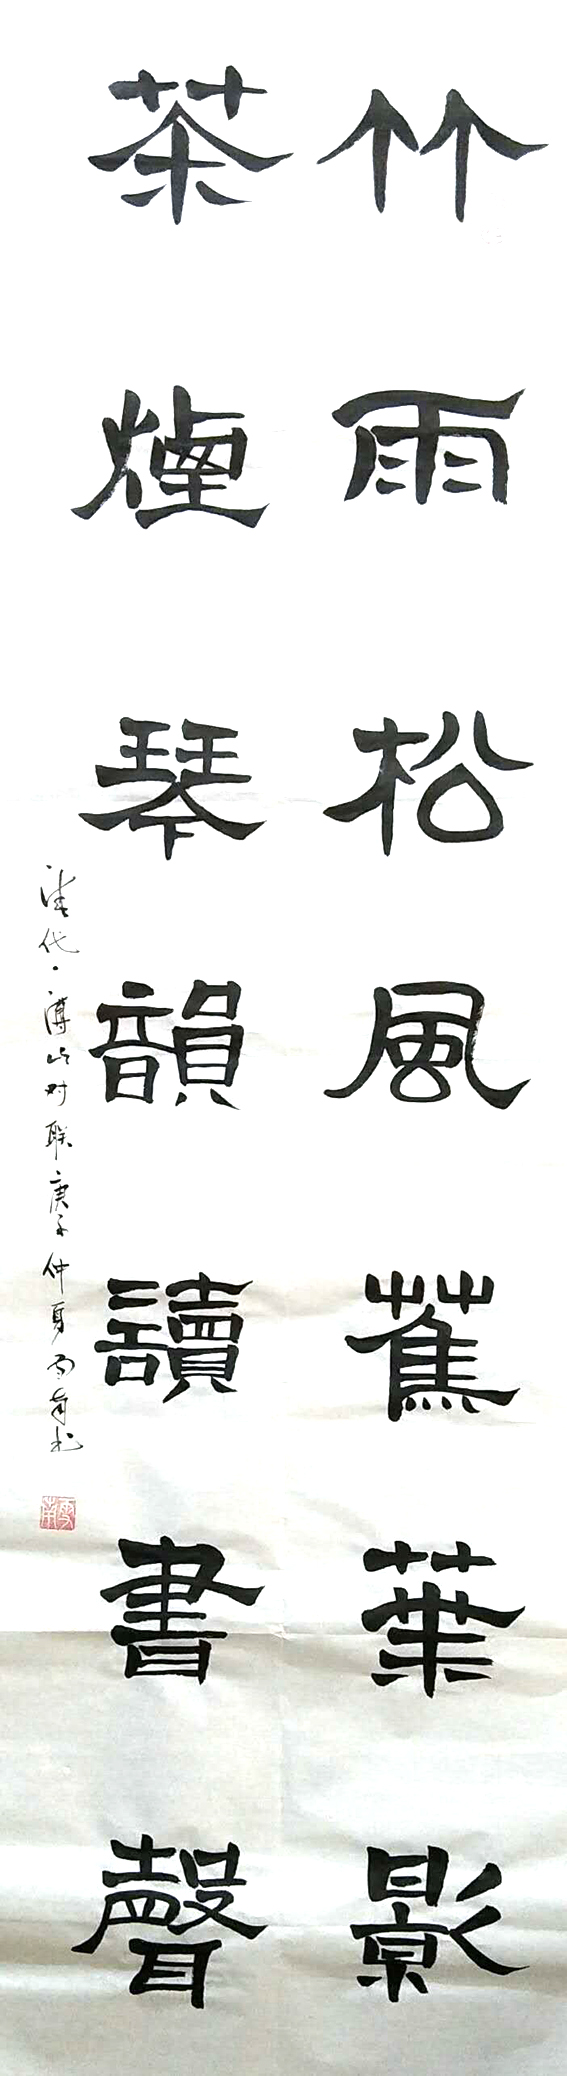 竹雨松風蕉葉影
茶煙琴韻讀書聲
清代·溥山对联庚子仲夏雨南书
雪南